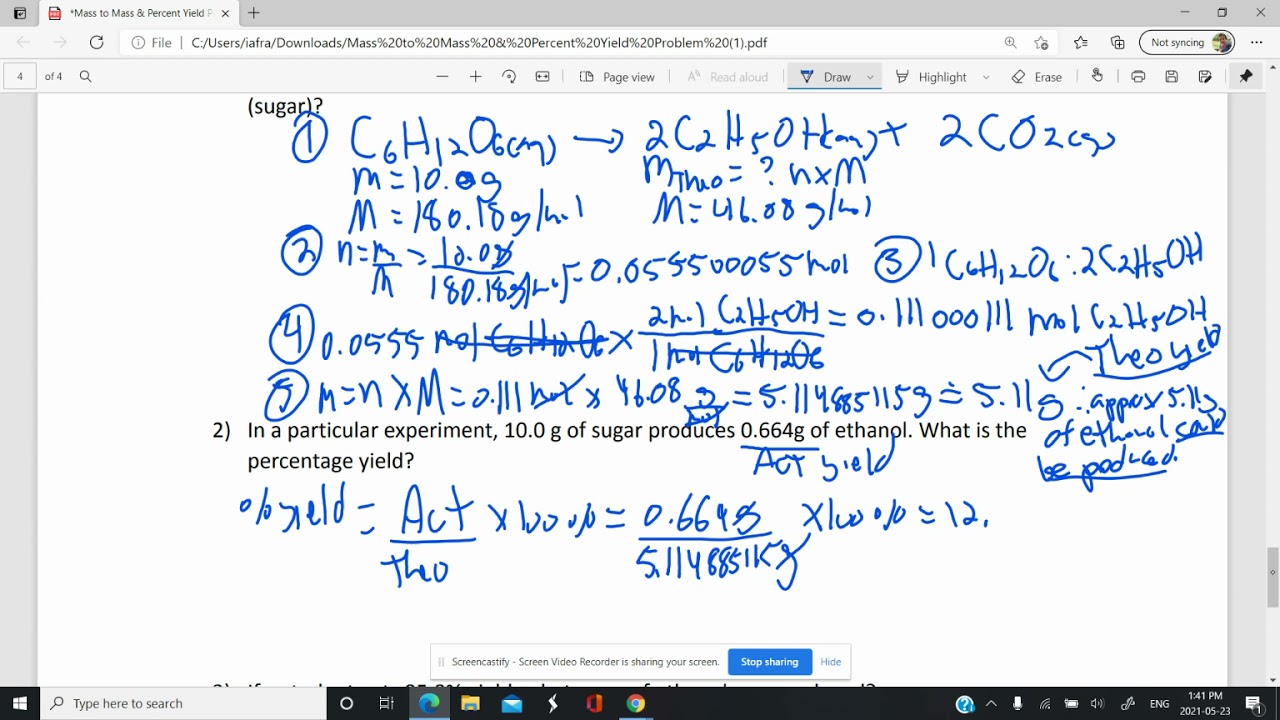 *Mass to Mass & Percent Yield P
File C:/Users/iafra/Downloads/Mass%20to%20Mass%20&%20Percent%20Yield%20Problem%20(1).pdf Not syncing
4 of 4 Page view Read aloud Draw Highlight Erase
(sugar)?
① C6H12O6(aq) → 2C2H5OH(aq) + 2CO2(g)
m = 10.0g mTheo = ? n×M
M = 180.18g/mol M = 46.08 g/mol
② n = m/M = 10.0g/180.18g/mol = 0.055500055 mol ③ 1C6H12O6 : 2C2H5OH
④ 0.0555 mol C6H12O6 × 2mol C2H5OH/1mol C6H12O6 = 0.111000111 mol C2H5OH
Theo yield
⑤ m = n × M = 0.111 mol × 46.08 g/mol = 5.114885115g ≐ 5.11g ∴ approx 5.11g
of ethanol could
be produced.
2) In a particular experiment, 10.0 g of sugar produces 0.664g of ethanol. What is the
percentage yield?
Act yield
% yield = Act/theo × 100% = 0.664g/5.114885115g × 100% = 12.
Screencastify - Screen Video Recorder is sharing your screen. Stop sharing Hide
Type here to search
ENG
1:41 PM
2021-05-23
1